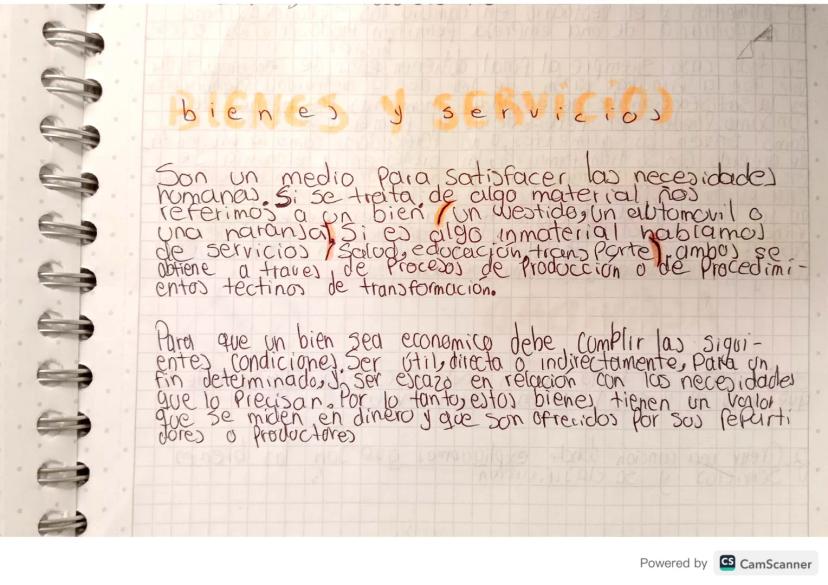 bienes y servicios
Son un medio para satisfacer las necesidades
humanas. Si se trata de algo material nos
referimos a un bien (un vestido, un automovil o
una naranja) Si es algo inmaterial hablamos
de servicios (salud, educación, transporte), ambos se
obtiene a traves de Procesos de Producción o de Procedimi-
entos tectinos de transformación.
Para que un bien sea economico debe cumplir las sigui-
entes condiciones. Ser útil, directa o indirectamente, para un
fin determinado, y ser escazo en relacion con las necesidades
que lo Precisan. Por lo tanto, estos bienes tienen un valor
que se miden en dinero y que son ofrecidos por sus reparti
dores o Productores
Powered by CS CamScanner